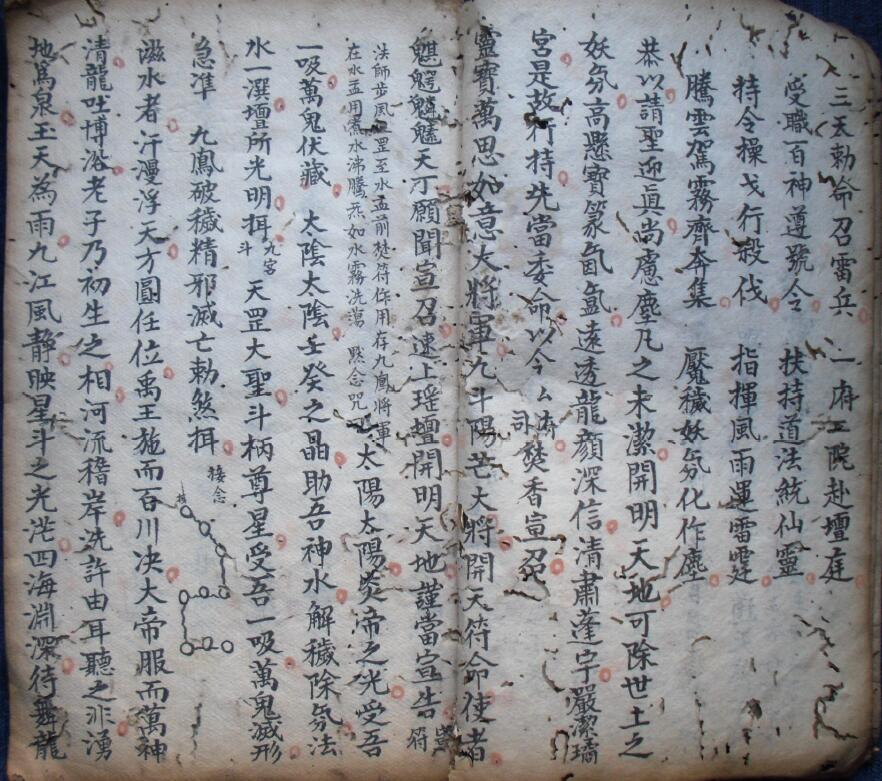 三天勅命召雷兵 一府二院赴壇庭
受職百神遵號令 扶持道法統仙靈
持令操戈行殺伐 指揮風雨運雷霆
騰雲駕霧齊奔集 魘穢妖氛化作塵
恭以請聖迎眞尚慮塵凡之未潔開明天地可除世土之
妖氛高懸寳篆氤氳遠透龍顔深信清肅蓬宇嚴潔璚
宮是故行持先當委命以今厶府司焚香宣召
靈寳萬思如意大將軍九斗陽芒大將開天符命使者
天丁願聞宣召速上瑶壇開明天地謹當宣告 符
法師步風罡至水盂前焚符作用存九鳳將軍
在水盂用炁水沸騰炁如水霧洗蕩 黙念咒
太陽太陽炎帝之光受吾
一吸萬鬼伏藏 太陰太陰壬癸之晶助吾神水解穢除氛法
水一潠壇所光明揖九宮斗天罡大聖斗柄尊星受吾一吸萬鬼滅形
急準 九鳳破穢精邪滅亡勅煞揖 接念
滋水者汗漫浮天方圓任位禹王施而百川决大帝服而萬神
清龍吐博浴老子乃初生之相河流稽岸洗許由耳聽之非湧
地爲泉玉天為雨九江風静映星斗之光茫四海淵深待舞龍